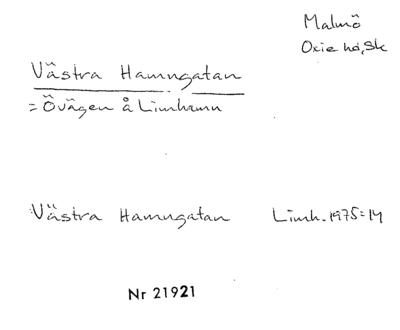 Malmö
Oxie hd, Sk
Västra Hamngatan
= Övägen å Limhamn
Västra Hamngatan Limh. 1975:14
Nr 21921